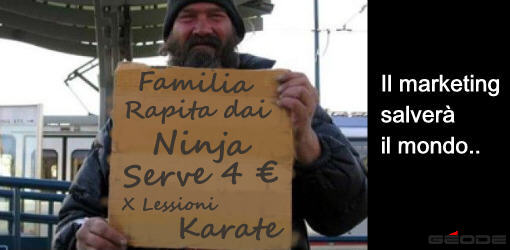 Familia
Rapita dai
Ninja
Serve 4 €
X Lessioni
Karate
Il marketing
salverà
il mondo..
GEODE